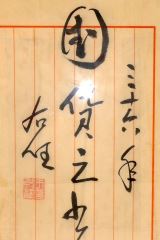 三十六年
國貨之
右任